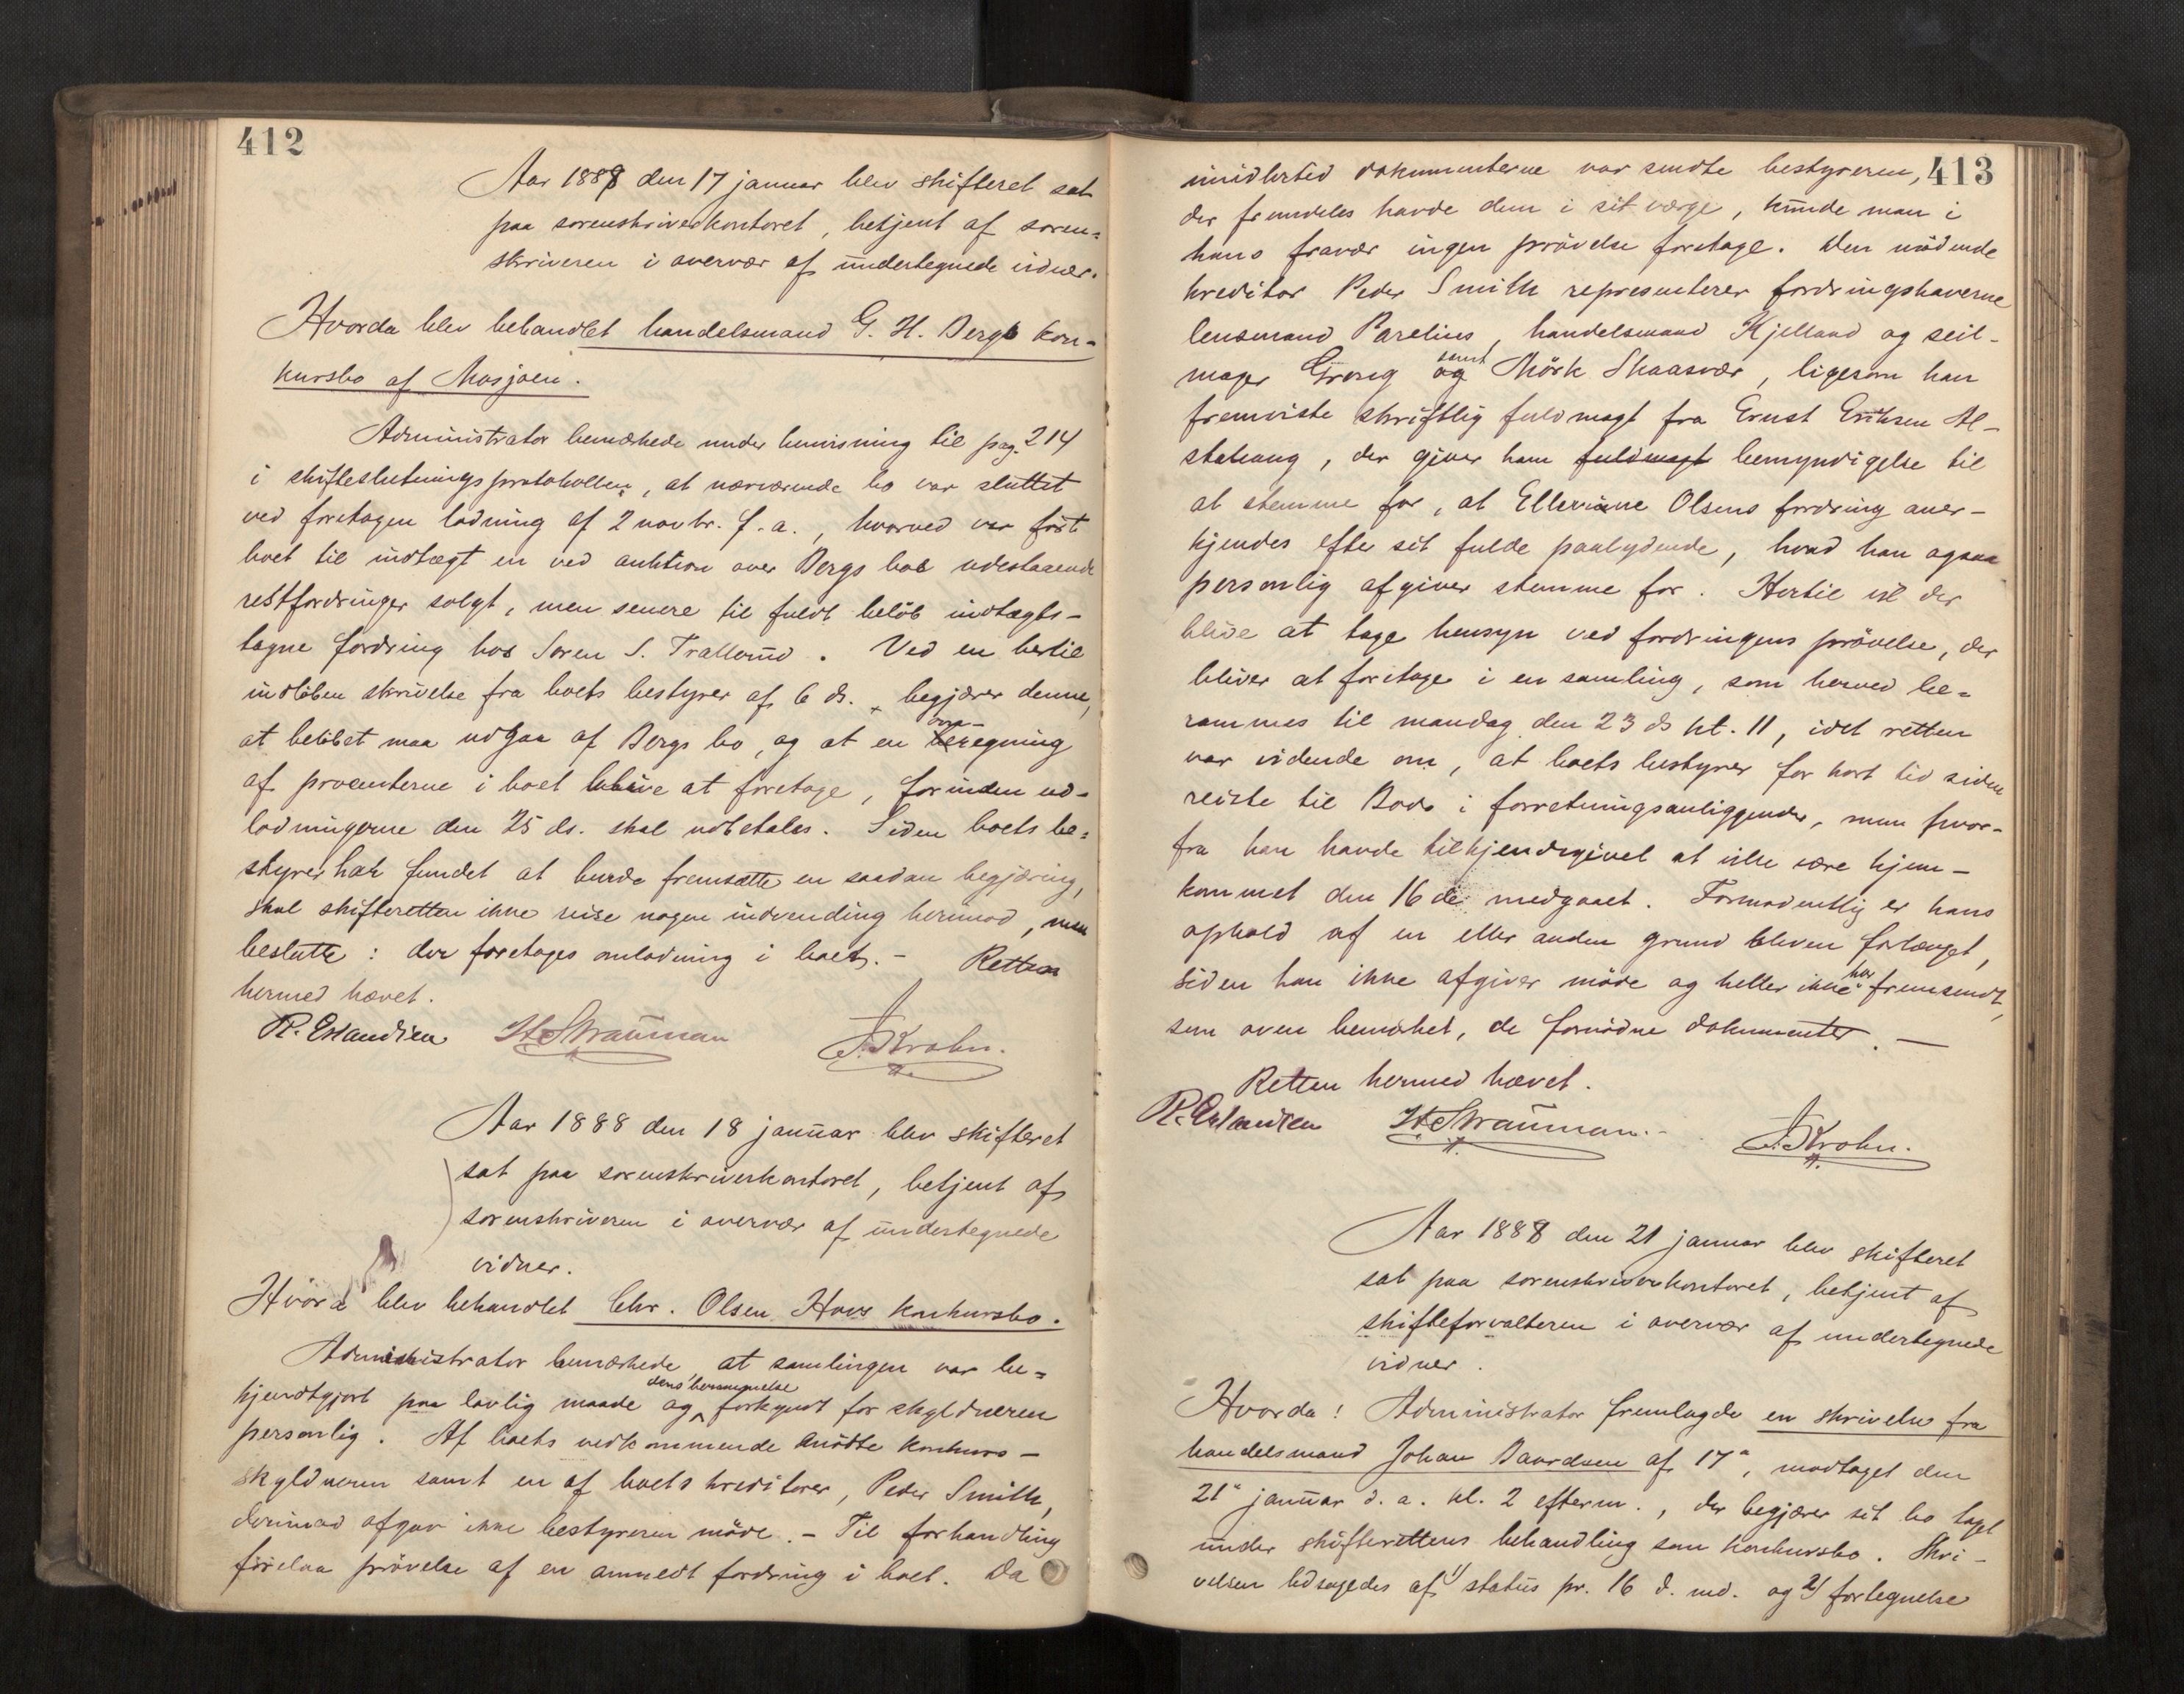 412
Aar 1888 den 17 januar blev skifteret sat
paa sorenskriverkontoret, betjent af soren=
skriveren i overvær af undertegnede vidner.
Hvorda blev behandlet handelsmand G. H. Bergs kon-
kursbo af Mosjøen.
Administrator bemærkede under henvisning til pag. 214
i skifteslutningsprotokollen, at nærværende bo var sluttet
ved foretagen lodning af 2 novbr. f. a., hvorved var ført
boet til indtægt en ved auktion over Bergs bos udestaaende
restfordringer solgt, men senere til fuldt beløb indtægts-
tagne fordring hos Soren S. . Ved en hertil
indløben skrivelse fra boets bestyrer af 6 ds. begjærer denne,
at beløbet maa udgaa af Bergs bo, og at en omregning
af procenterne i boet blive at foretage, forinden ud-
lodningerne den 25 ds. skal udbetales. Siden boets be=
styrer har fundet at burde fremsætte en saadan begjæring,
skal skifteretten ikke reise nogen indvending herimod, men
beslutte: der foretages omlodning i boet. - Retten
hermed hævet.
R. Erlandsen H. Strauman A. Krohn.
Aar 1888 den 18 januar blev skifteret
sat paa sorenskriverkontoret, betjent af
sorenskriveren i overvær af undertegnede
vidner.
Hvorda blev behandlet Chr. Olsen Hovs konkursbo.
Administrator bemærkede, at samlingen var be=
kjendtgjort paa lovlig maade og dens berammelse forkyndt for skyldneren
personlig. Af boets vedkommende mødte konkurs-
skyldneren samt en af boets kreditorer, Peder Smith,
derimod afgav ikke bestyreren møde. - Til forhandling
forelaa prøvelse af en anmeldt fordring i boet. Da
413
imidlertid dokumenterne var sendte bestyreren,
der fremdeles havde dem i sit værge, kunde man i
hans fravær ingen prøvelse foretage. Den mødende
kreditor Peder Smith representerer fordringshaverne
lensmand Parelius, handelsmand Kjelland og seil-
mager Grong samt og Mørk Skaasvær, ligesom han
fremviste skriftlig fuldmagt fra Ernst Eriksen Al-
stahaug, der giver ham fuldmagt bemyndigelse til
at stemme for, at Ellevine Olsens fordring aner-
kjendes efter sit fulde paalydende, hvad han ogsaa
personlig afgiver stemme for. Hertil vil der
blive at tage hensyn ved fordringens prøvelse, der
bliver at foretage i en samling, som herved be=
rammes til mandag den 23 ds kl. 11, idet retten
var vidende om, at boets bestyrer for kort tid siden
reiste til Bodø i forretningsanliggender, men hvor-
fra han havde tilkjendegivet at ville være hjem-
kommet den 16de medgaaet. Formodentlig er hans
ophold af en eller anden grund bleven forlænget,
siden han ikke afgiver møde og heller ikke har fremsendt,
som oven bemærket, de fornødne dokumenter. -
Retten hermed hævet.
R. Erlandsen H. Strauman. A. Krohn.
Aar 1888 den 21 januar blev skifteret
sat paa sorenskriverkontoret, betjent af
skifteforvalteren i overvær af undertegnede
vidner.
Hvorda! Administrator fremlagde en skrivelse fra
handelsmand Johan Baardsen af 17", modtaget den
21" januar d. a. kl. 2 efterm., der begjærer sit bo taget
under skifterettens behandling som konkursbo. Skri-
velsen ledsagedes af 1/ status pr. 16 d. md. og 2/ fortegnelse